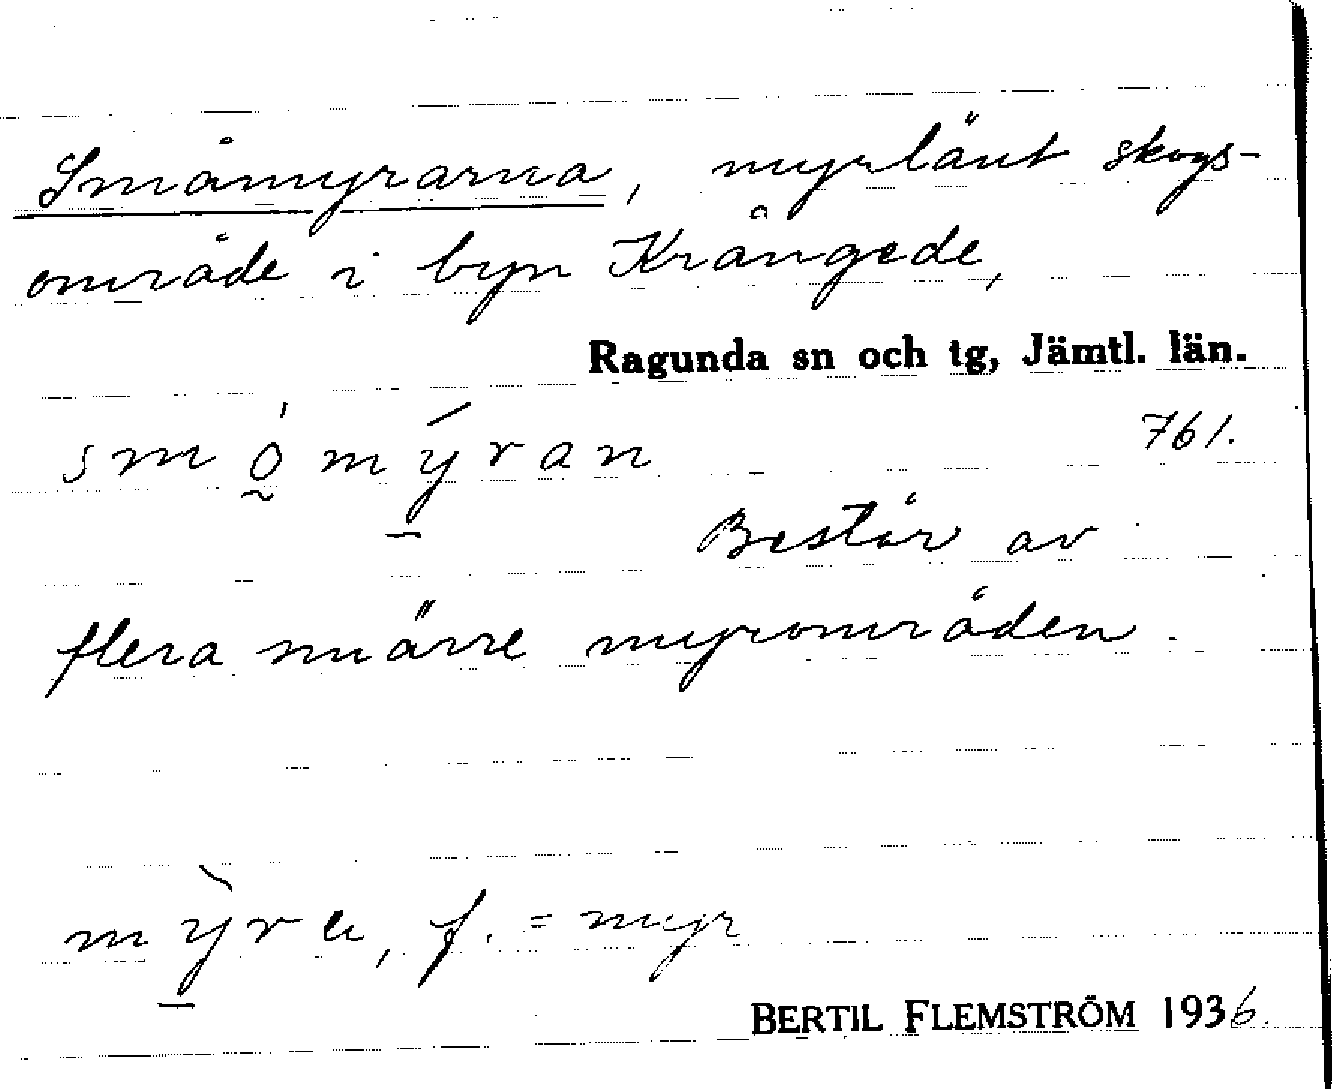 Småmyrarna, myrlänt skogs-
område i byn Krångede,
Ragunda sn och tg, Jämtl. län.
smo̰̍mý̱ran 761.
Består av
flera smärre myrområden.
mỳ̱ra, f. = myr
BERTIL FLEMSTRÖM 1936.